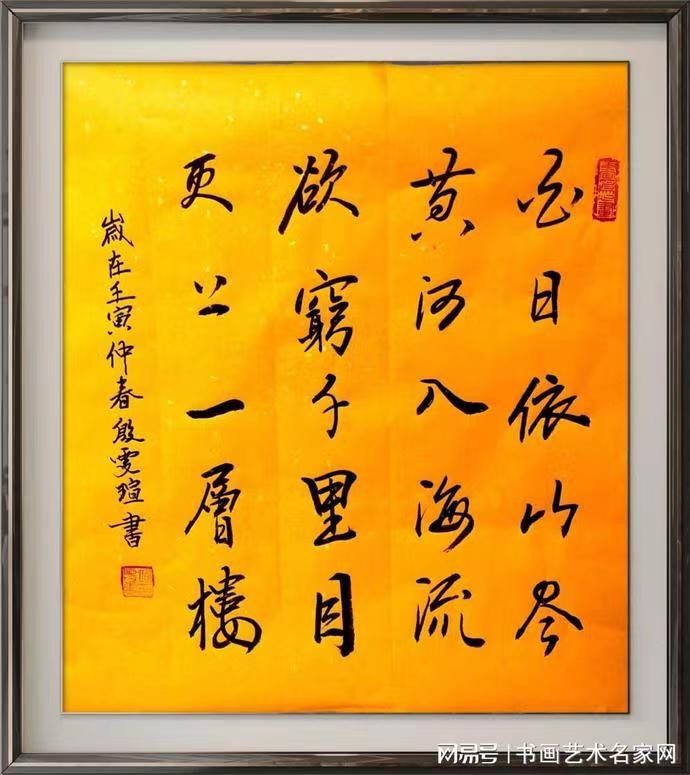 白日依山尽
黄河入海流
欲窮千里目
更上一層樓
歲在壬寅仲春殷雯瑄書
网易号 | 书画艺术名家网